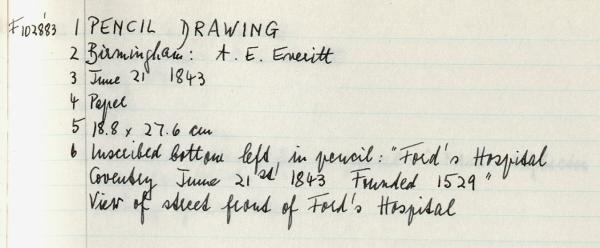 F102'883 1 PENCIL DRAWING
2 Birmingham: A. E. Everitt
3 June 21 1843
4 Paper
5 18.8 x 27.6 cm
6 Inscribed bottom left, in pencil: "Ford's Hospital
Coventry June 21st 1843 Founded 1529"
View of street front of Ford's Hospital